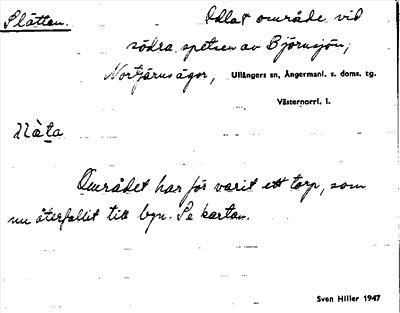 Slätten. Odlat område vid
södra spetsen av Björnsjön;
Norrtjärns ägor, Ullångers sn, Ångermanl. s. doms. tg.
Västernorrl. l.
Området har för varit ett torp, som
nu återfallit till byn. Se kartan.
Sven Hiller 1947